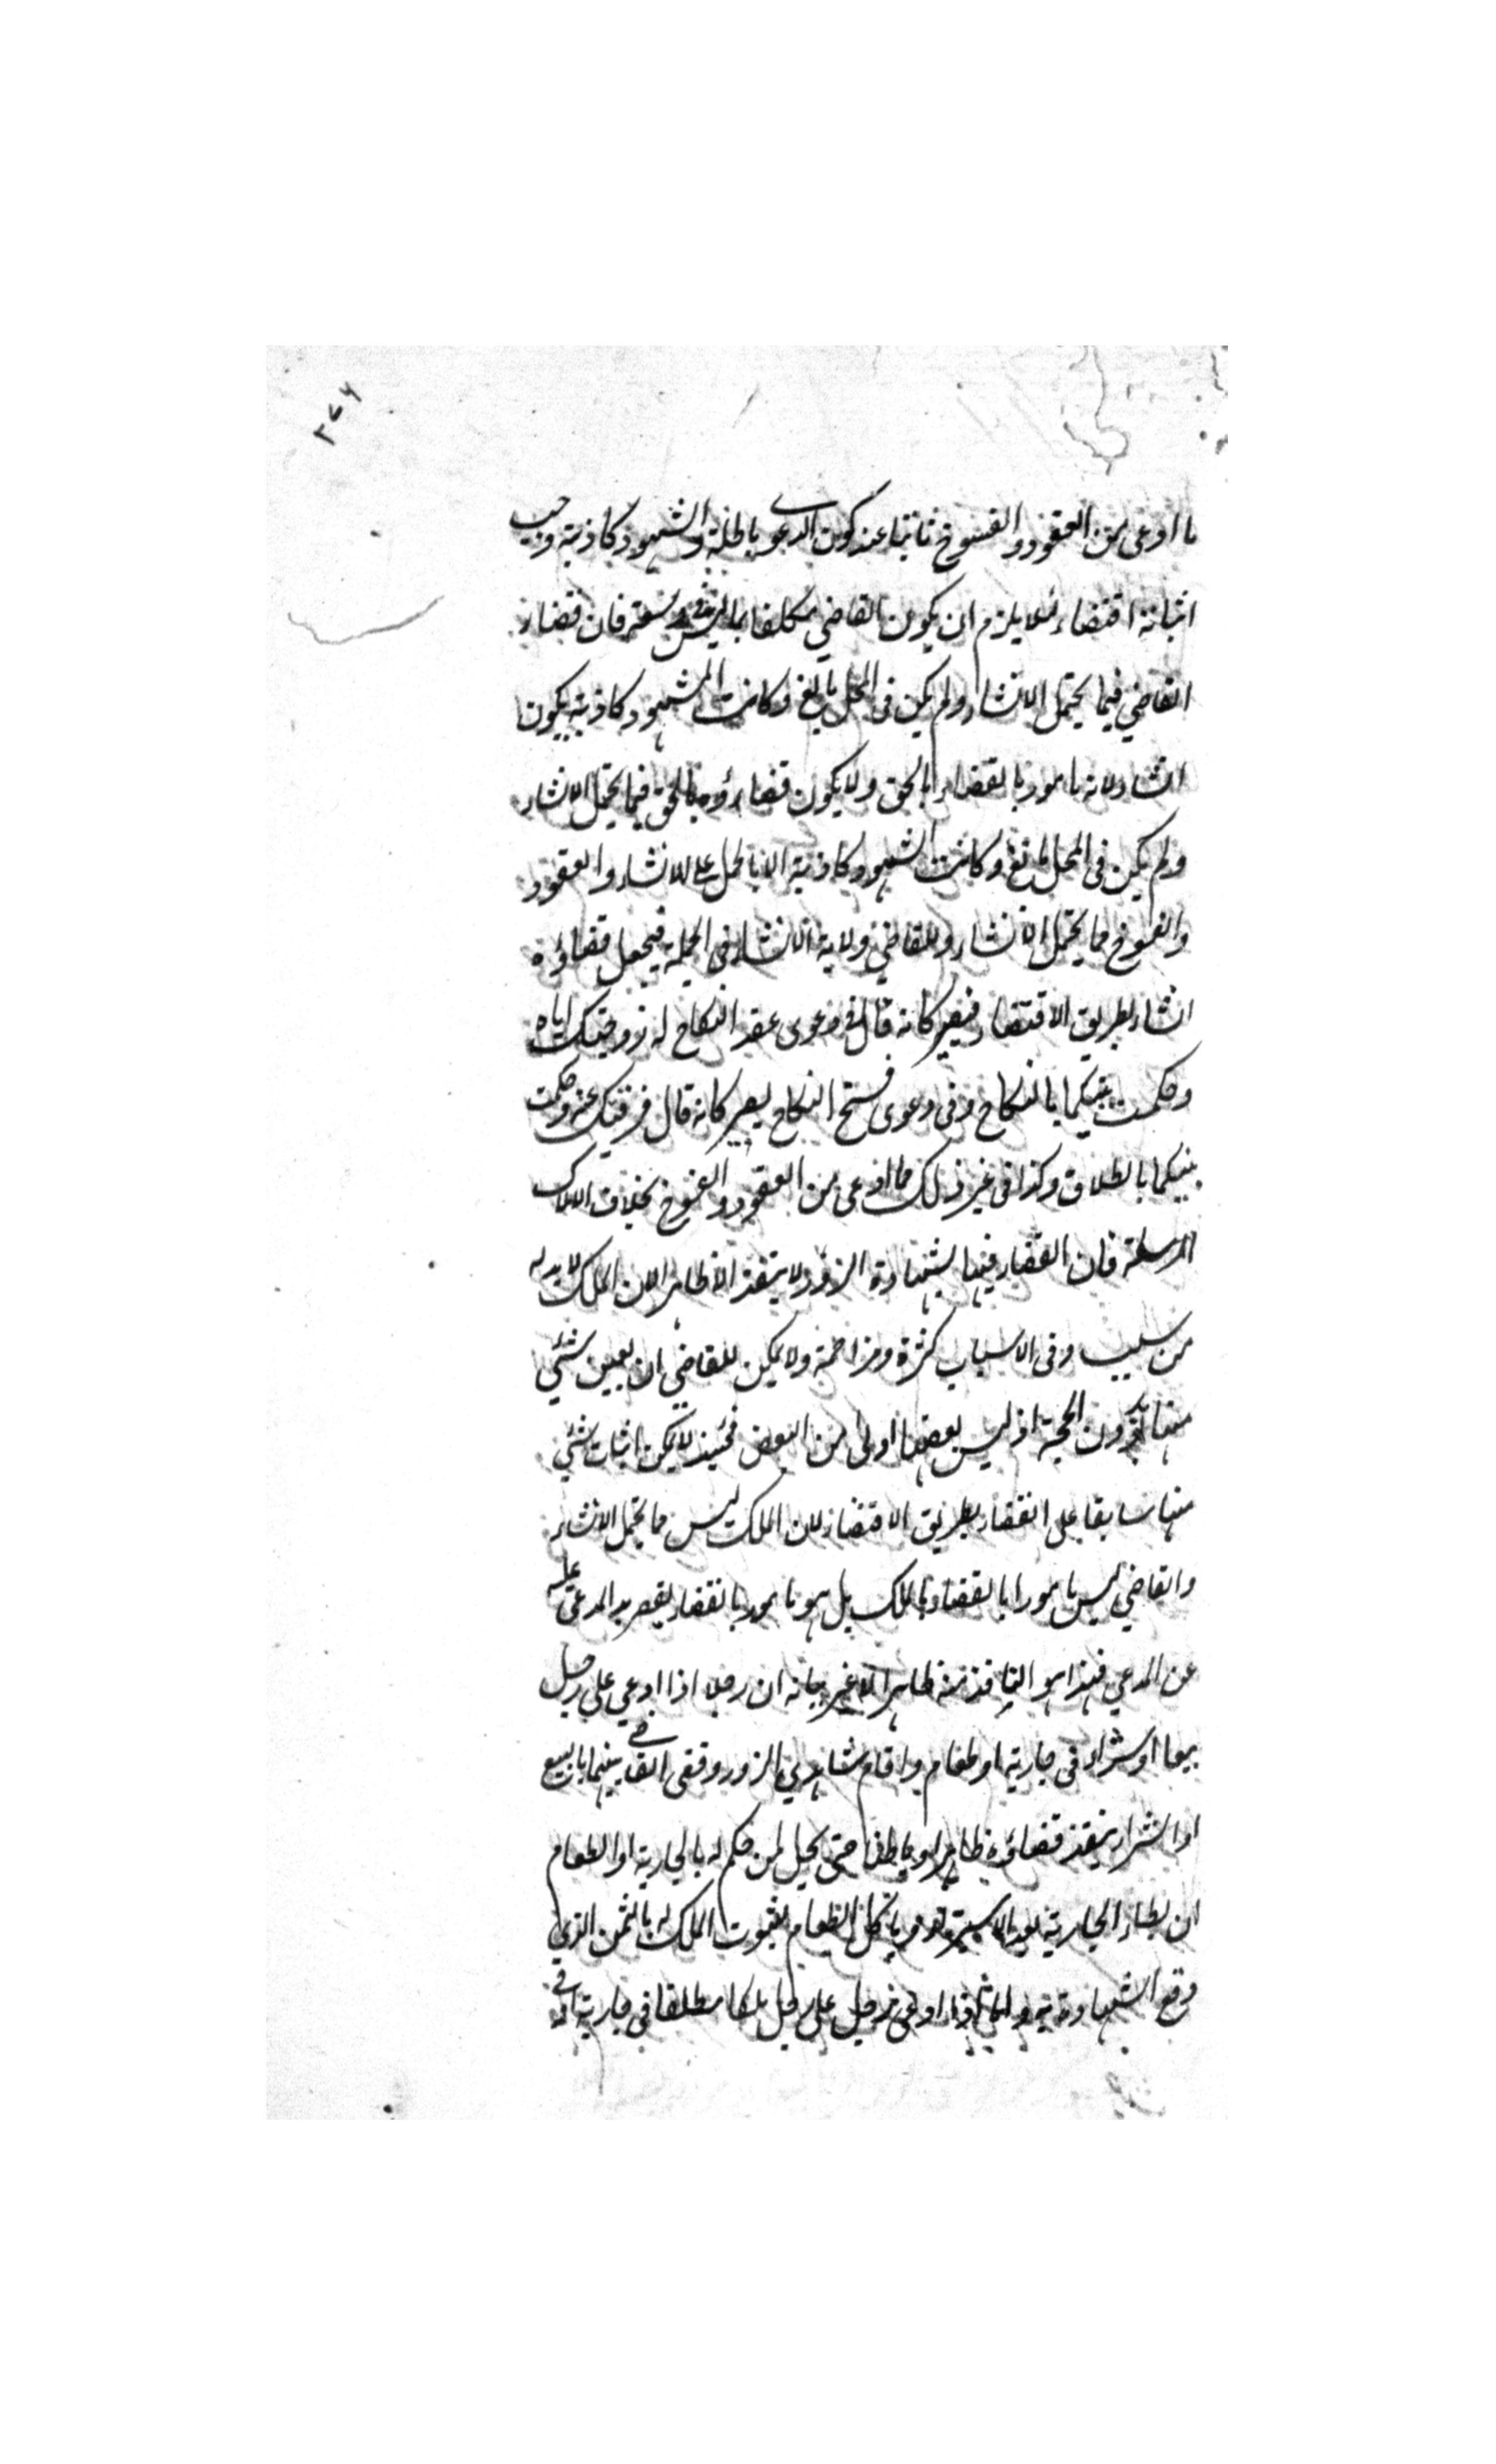 ٣٧٦
ما ادعى من العقود والفسوخ ثابتا عند كون الدعوى باطلة والشهود كاذبة وجب
اثباته اقتضاء لئلا يلزم ان يكون القاضي مكلفا بما ليس في وسعه فان قضاء
القاضي فيما يحتمل الانشاء ولم يكن في المحل مانع وكانت الشهود كاذبة يكون
انشاء لانه مامور بالقضاء بالحق ولا يكون قضاؤه بالحق فيما يحتمل الانشاء
ولم يكن في المحل مانع وكانت الشهود كاذبة الا بالحمل على الانشاء والعقود
والفسوخ مما يحتمل الانشاء وللقاضي ولاية الانشاء في الجملة فيجعل قضاؤه
انشاء بطريق الاقتضاء فيصير كانه قال في دعوى عقد النكاح له زوجتك اياه
وحكمت بينكما بالنكاح وفي دعوى فسخ النكاح يصير كانه قال فرقتك عنه وحكمت
بينكما بالطلاق وكذا في غير ذلك مما ادعى من العقود والفسوخ بخلاف الاملاك
المرسلة فان القضاء فيها بشهادة الزور لا ينفذ الا ظاهرا لان الملك لا بد له
من سبب وفي الاسباب كثرة ومزاحمة ولا يمكن للقاضي ان يعين شئي
منها بدون الحجة اذ ليس بعضها اولى من البعض فحينئذ لا يمكن اثبات شئي
منها سابقا على القضاء بطريق الاقتضاء لان الملك ليس مما يحتمل الانشاء
والقاضي ليس مامورا بالقضاء بالملك بل هو مامور بالقضاء بقصر يد المدعى عليه
عن المدعي فهذا هو النافذ منه ظاهرا لا غير بيانه ان رجلا اذا ادعي على رجل
بيعا او شراء في جارية او طعام واقام شاهدي الزور وقضى القاضي بينهما بالبيع
او الشراء ينفذ قضاؤه ظاهرا وباطنا حتى يحل لمن حكم له بالجارية او الطعام
ان يطاء الجارية بعد الاستبراء وياكل الطعام لثبوت الملك له بالثمن الذي
وقع الشهادة به واما اذا ادعى رجل على رجل ملكا مطلقا في جارية